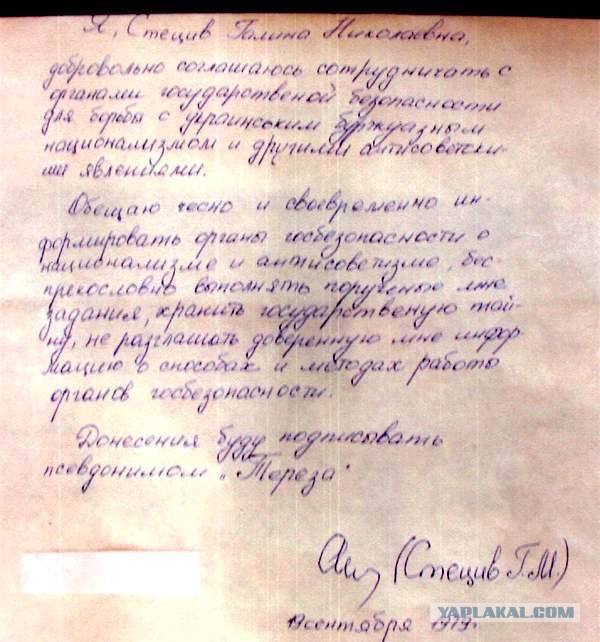 Я, Стецив Галина Николаевна,
добровольно соглашаюсь сотрудничать с
органами государственой безопасности
для борьбы с украинским буржуазным
национализмом и другими антисоветски-
ми явлениями.
Обещаю чесно и своевременно ин-
формировать органы госбезопасности о
национализме и антисоветизме, бес-
прекословно выполнять порученые мне
задания, хранить государственую тай-
ну, не разглашать доверенную мне инфор-
мацию о способах и методах работы
органов госбезопасности.
Донесения буду подписывать
псевдонимом „Тереза"
(Стецив Г.М.)
сентября 1979г.
YAPLAKAL.COM